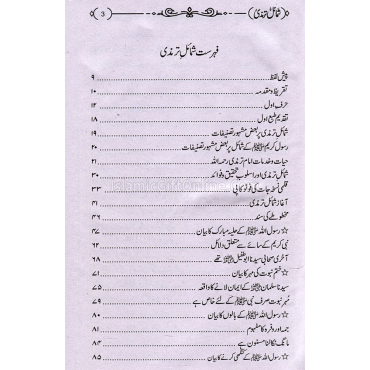 شمائل ترمذی 3
فہرست شمائل ترمذی
پیش لفظ ۹
تقریظ و مقدمہ ۱۰
حرف اول ۱۴
تقدیم طبع اول ۱۸
شمائل ترمذی پر بعض مشہور تصنیفات ۱۹
رسول کریم ﷺ کے شمائل پر بعض مشہور تصنیفات ۲۰
حیات و خدمات امام ترمذی رحمہ اللہ ۲۱
شمائل ترمذی اور اسلوب تحقیق و فوائد ۳۰
قلمی نسخہ جات کی فوٹو کاپی ۳۳
آغاز شمائل ترمذی
مخطوطے کی سند ۴۶
☆ رسول اللہ ﷺ کے حلیہ مبارک کا بیان ۴۷
نبی کریم ﷺ کے سائے سے متعلق دلائل ۶۴
آخری صحابی سیدنا ابوالطفیل رضی اللہ عنہ تھے ۶۸
☆ ختم نبوت کی مہر کا بیان ۷۱
سیدنا سلمان رضی اللہ عنہ کے ایمان لانے کا واقعہ ۷۵
مہر نبوت صرف نبی ﷺ کے لئے خاص ہے ۷۹
☆ رسول اللہ ﷺ کے بالوں کا بیان ۸۰
جمہ اور وفرہ کا مفہوم ۸۱
مانگ نکالنا مسنون ہے ۸۴
☆ رسول اللہ ﷺ کے کنگھی کرنے کا بیان ۸۵